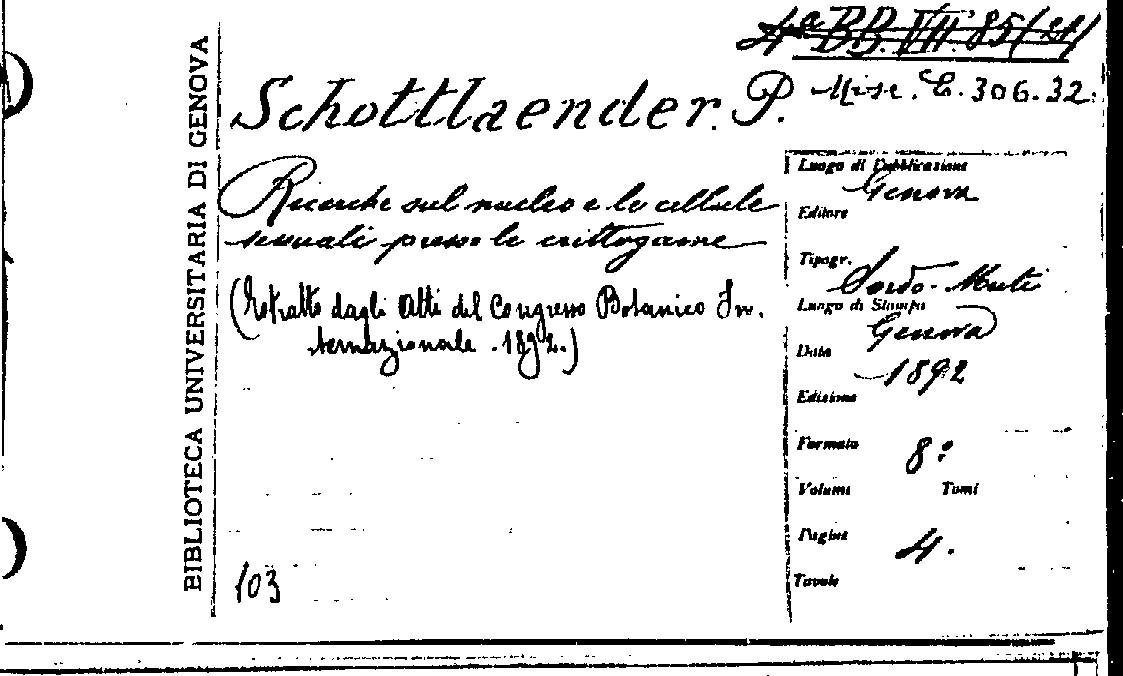 4ª BB. VII. 85/(21)
Misc. E. 306.32.
Schottlaender. P.
Ricerche sul nucleo e le cellule
sessuali presso le crittogame
(Estratto dagli Atti del Congresso Botanico In-
ternazionale. 1892.)
103
BIBLIOTECA UNIVERSITARIA DI GENOVA
Luogo di Pubblicazione
Genova
Editore
Tipogr.
Sordo-Muti
Luogo di Stampa
Genova
Data
1892
Edizione
Formato 8º
Volumi Tomi
Pagine 4.
Tavole